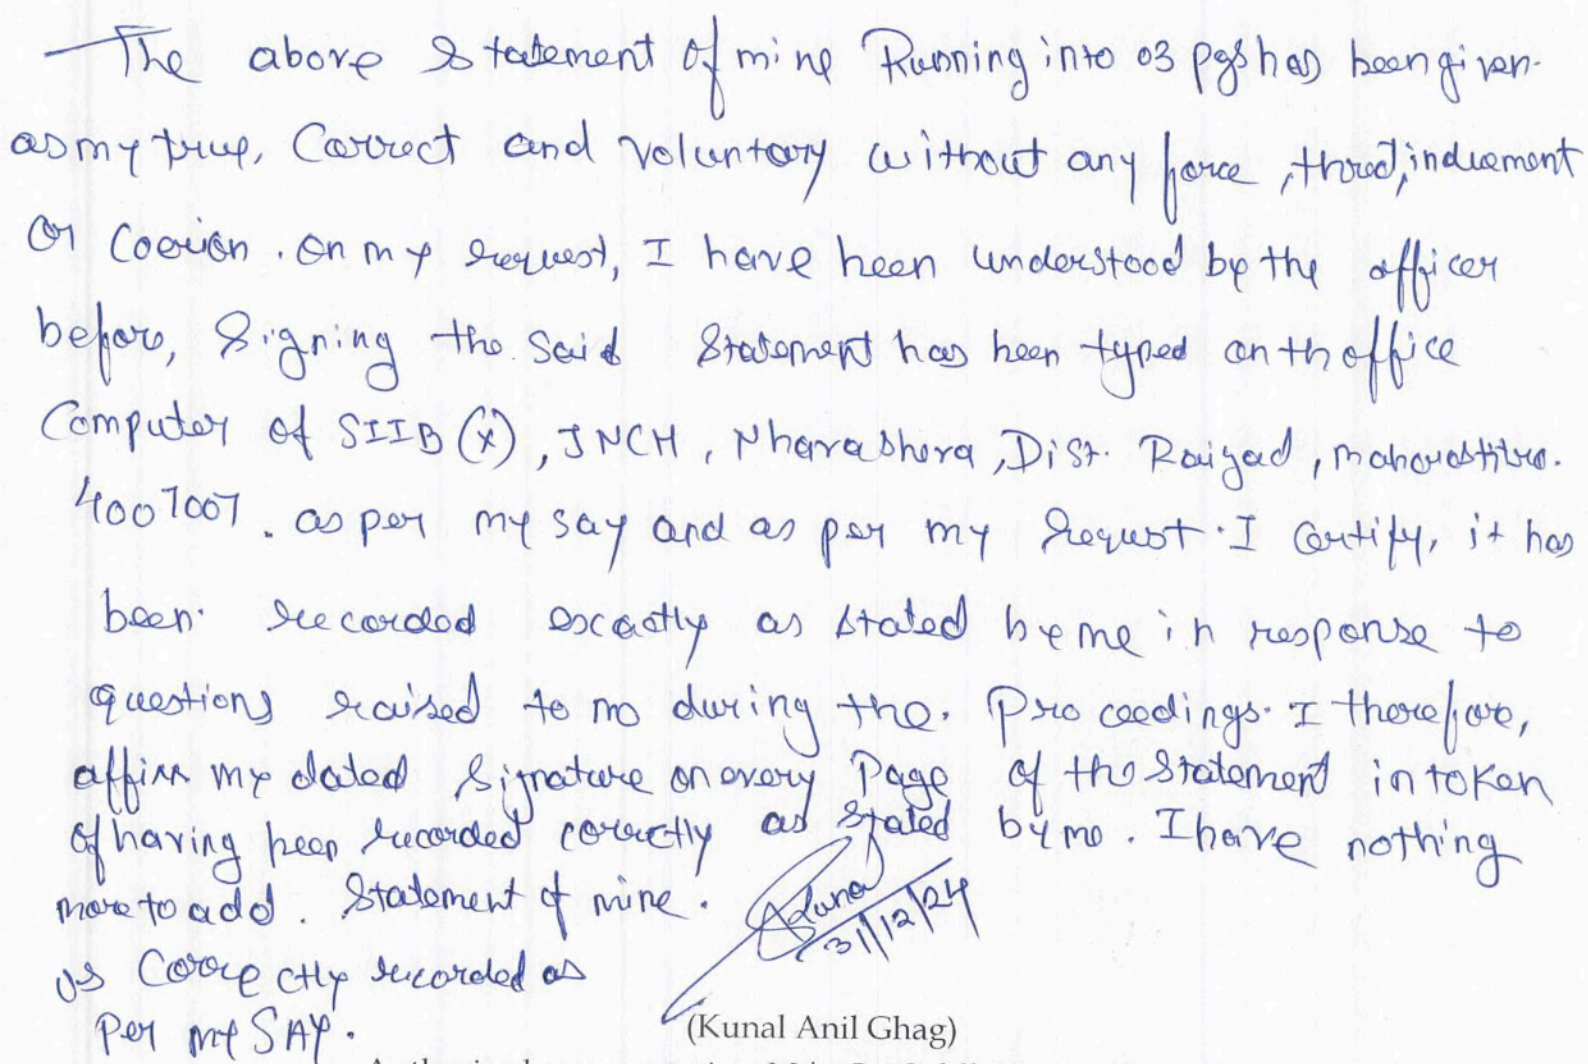 The above Statement of mine Running into 03 pgs has been given.
as my true, Correct and Voluntary without any force, thred, inducement
or Coercion. on my request, I have been understood by the officer
before, Signing the Said Statement has been typed on th office
Computer of SIIB (X), JNCH, Nhavashera, Dist. Raigad, maharashtra.
4007007. as per my say and as per my request. I certify, it has
been recorded excactly as stated by me in response to
questions raised to me during the. Proceedings. I therefore,
affirm my dated Signature on every Page of the Statement in token
of having been recorded correctly as stated by me. I have nothing
more to add. Statement of mine.
Kunal
31/12/24
us Correctly recorded as
Per my SAY.
(Kunal Anil Ghag)